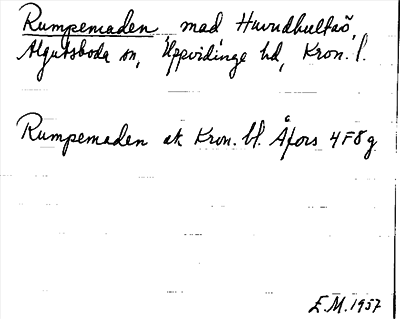 Rumpemaden mad Huvudhultaö,
Algutsboda sn, Uppvidinge hd, Kron. l.
Rumpemaden ek Kron. bl. Åfors 4F8g
E.M. 1957